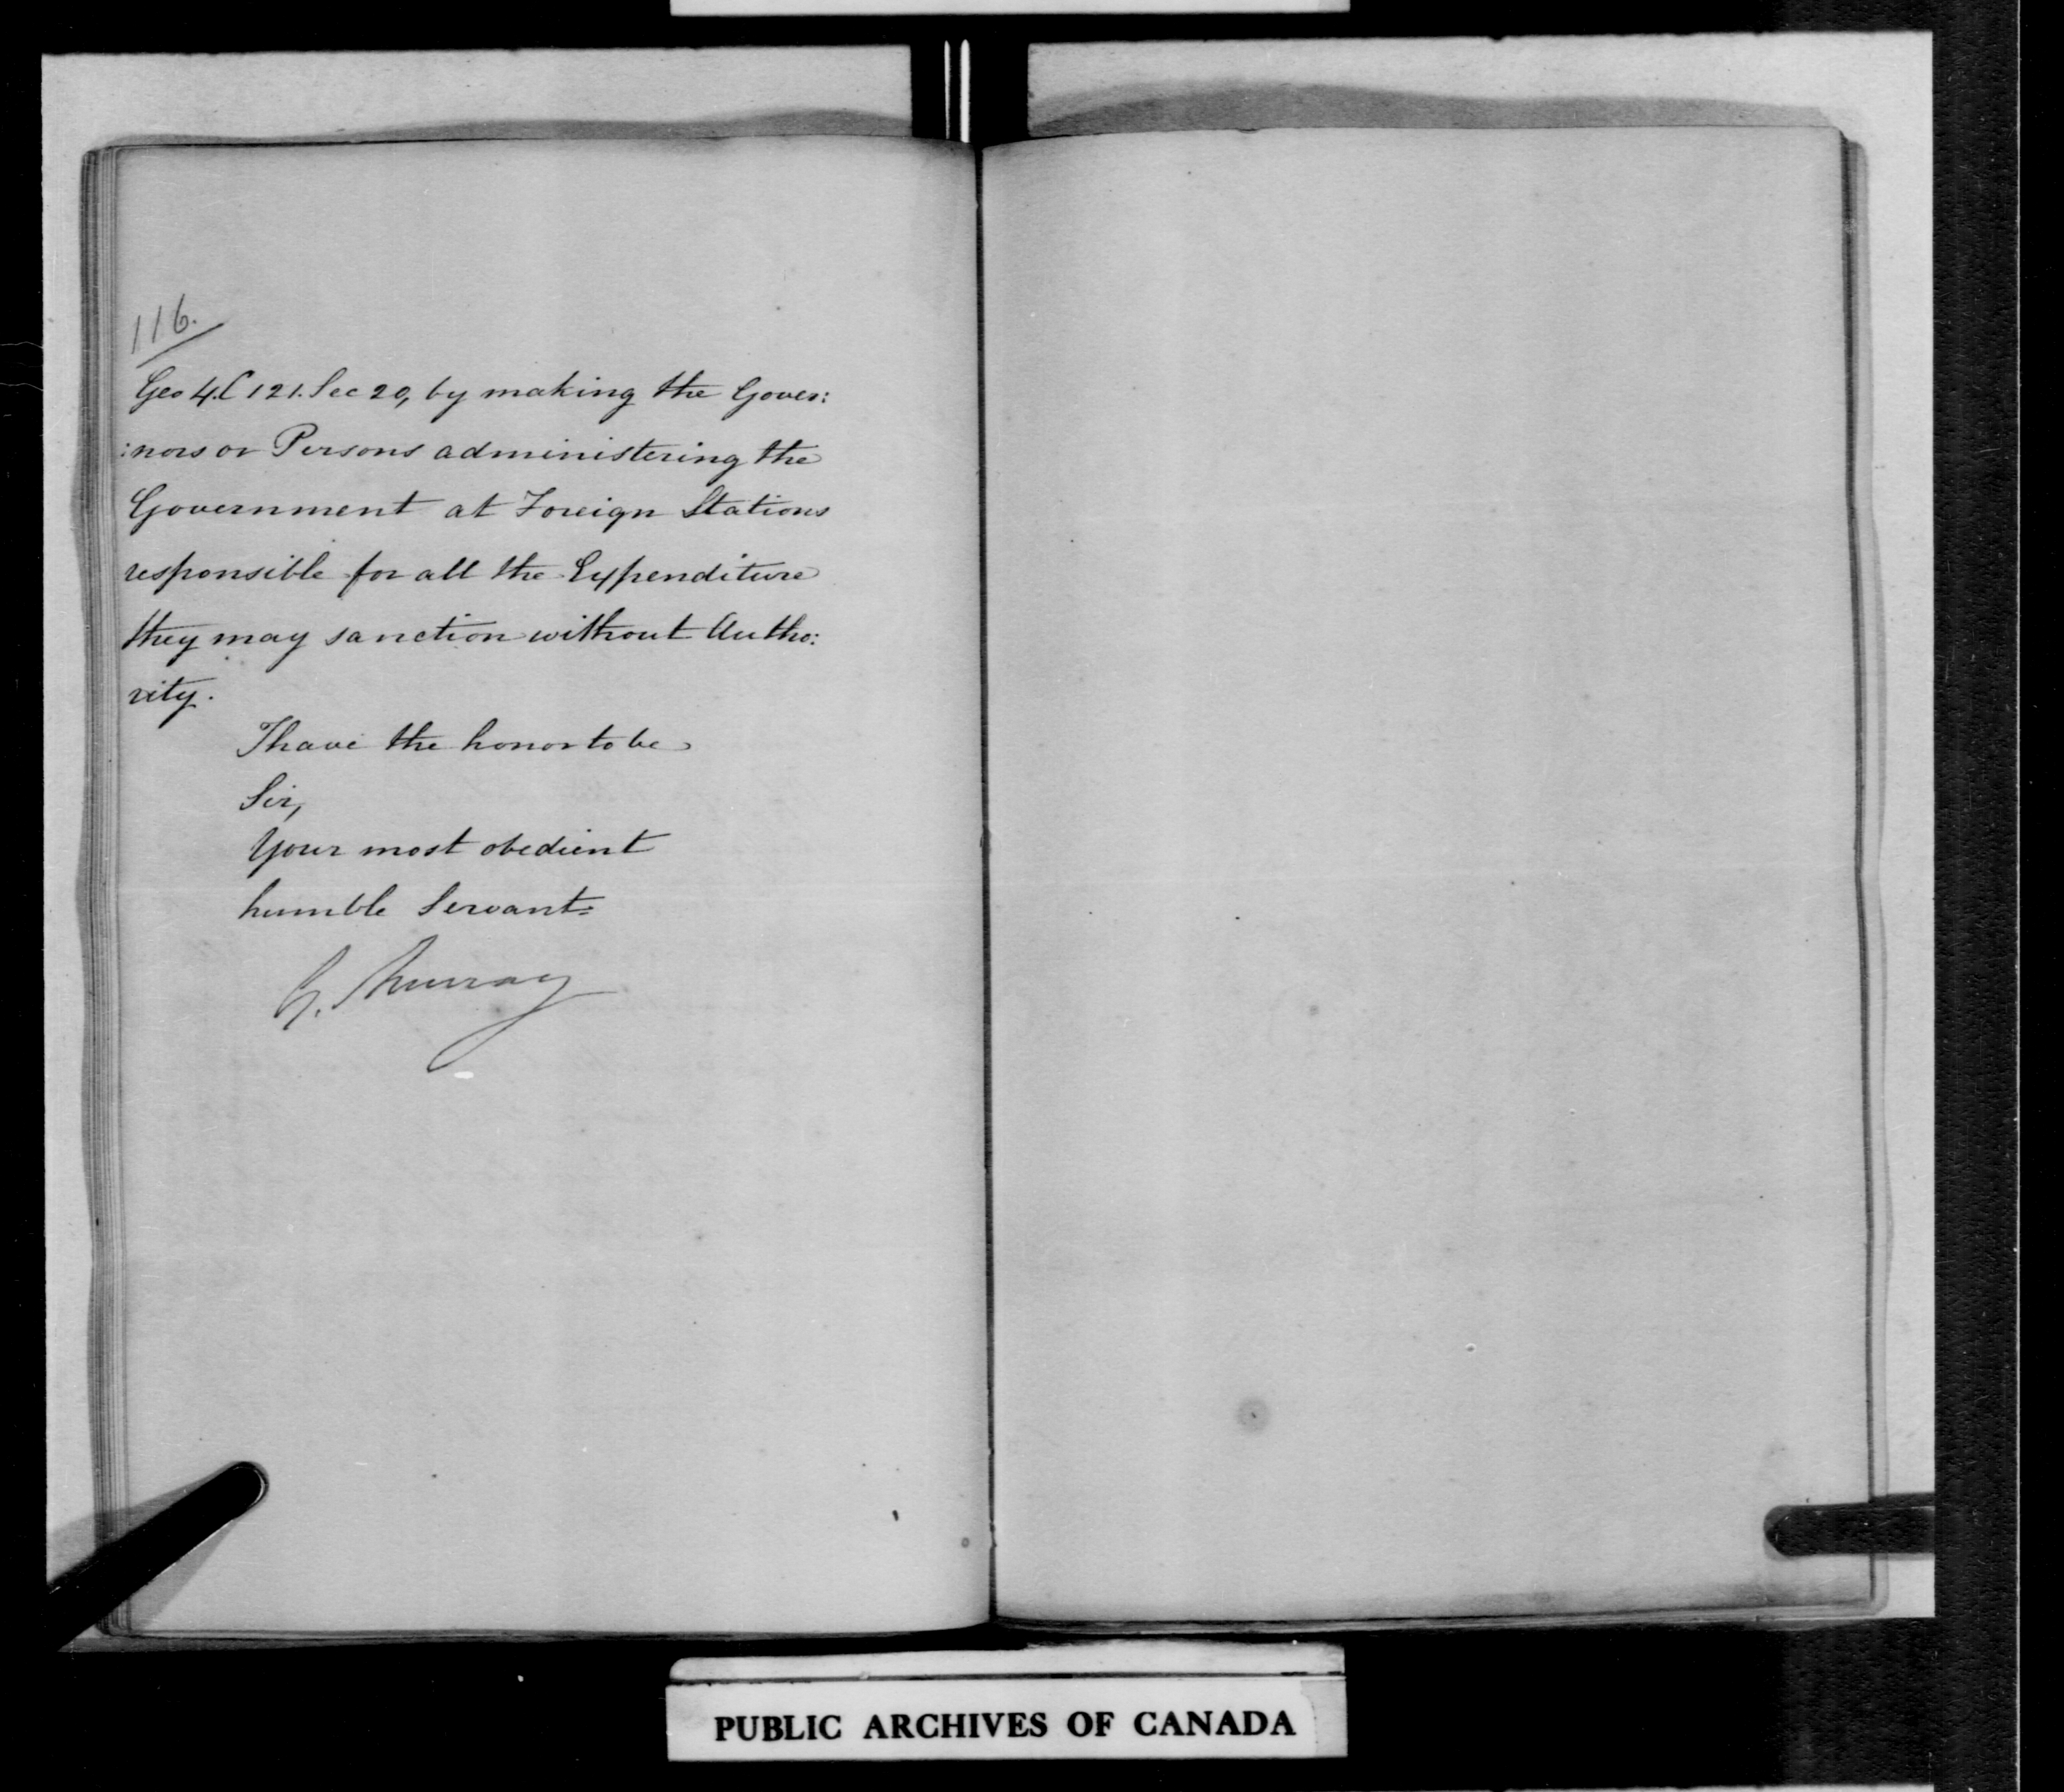 116.
Geo 4. C 121. Sec 20, by making the Gover:
:nors or Persons administering the
Government at Foreign Stations
responsible for all the Expenditure
they may sanction without Autho:
rity.
I have the honor to be
Sir,
Your most obedient
humble Servant
G. Murray
PUBLIC ARCHIVES OF CANADA